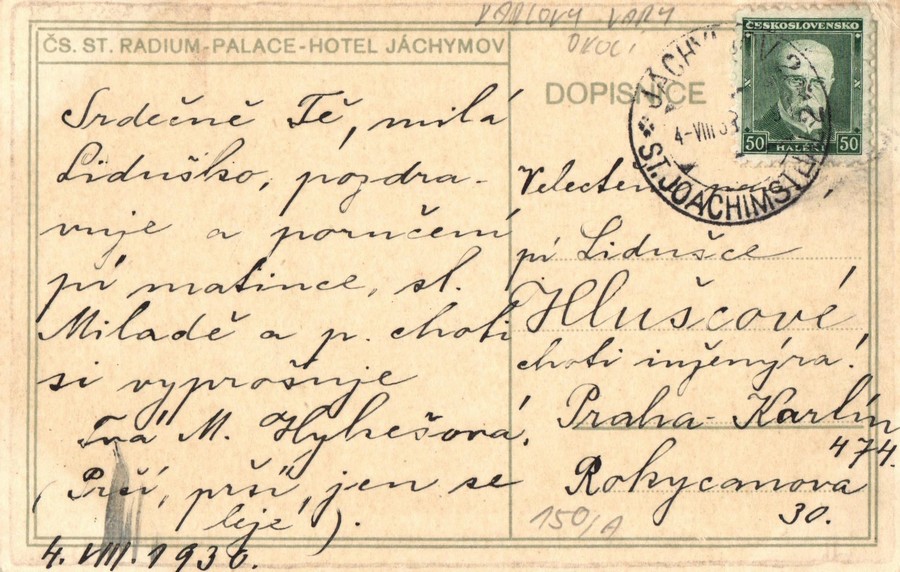 KARLOVY VARY
OKOLÍ
ČS. ST. RADIUM-PALACE-HOTEL JÁCHYMOV
DOPISNICE
ČESKOSLOVENSKO
50 HALÉŘŮ 50
JÁCHYMOV
4-VIII
ST. JOACHIMSTHAL
Srdečně Tě, milá
Liduško, pozdra-
vuje a poručení
pí matince, sl.
Miladě a p. choti
si vyprošuje
Tvá M. Hykešová.
(Prší, prší, jen se
leje).
4. VIII. 1930.
Velectěná paní,
pí Lidušce
Hlušcové
choti inženýra!
Praha-Karlín
474.
Rokycanova
30.
150/A